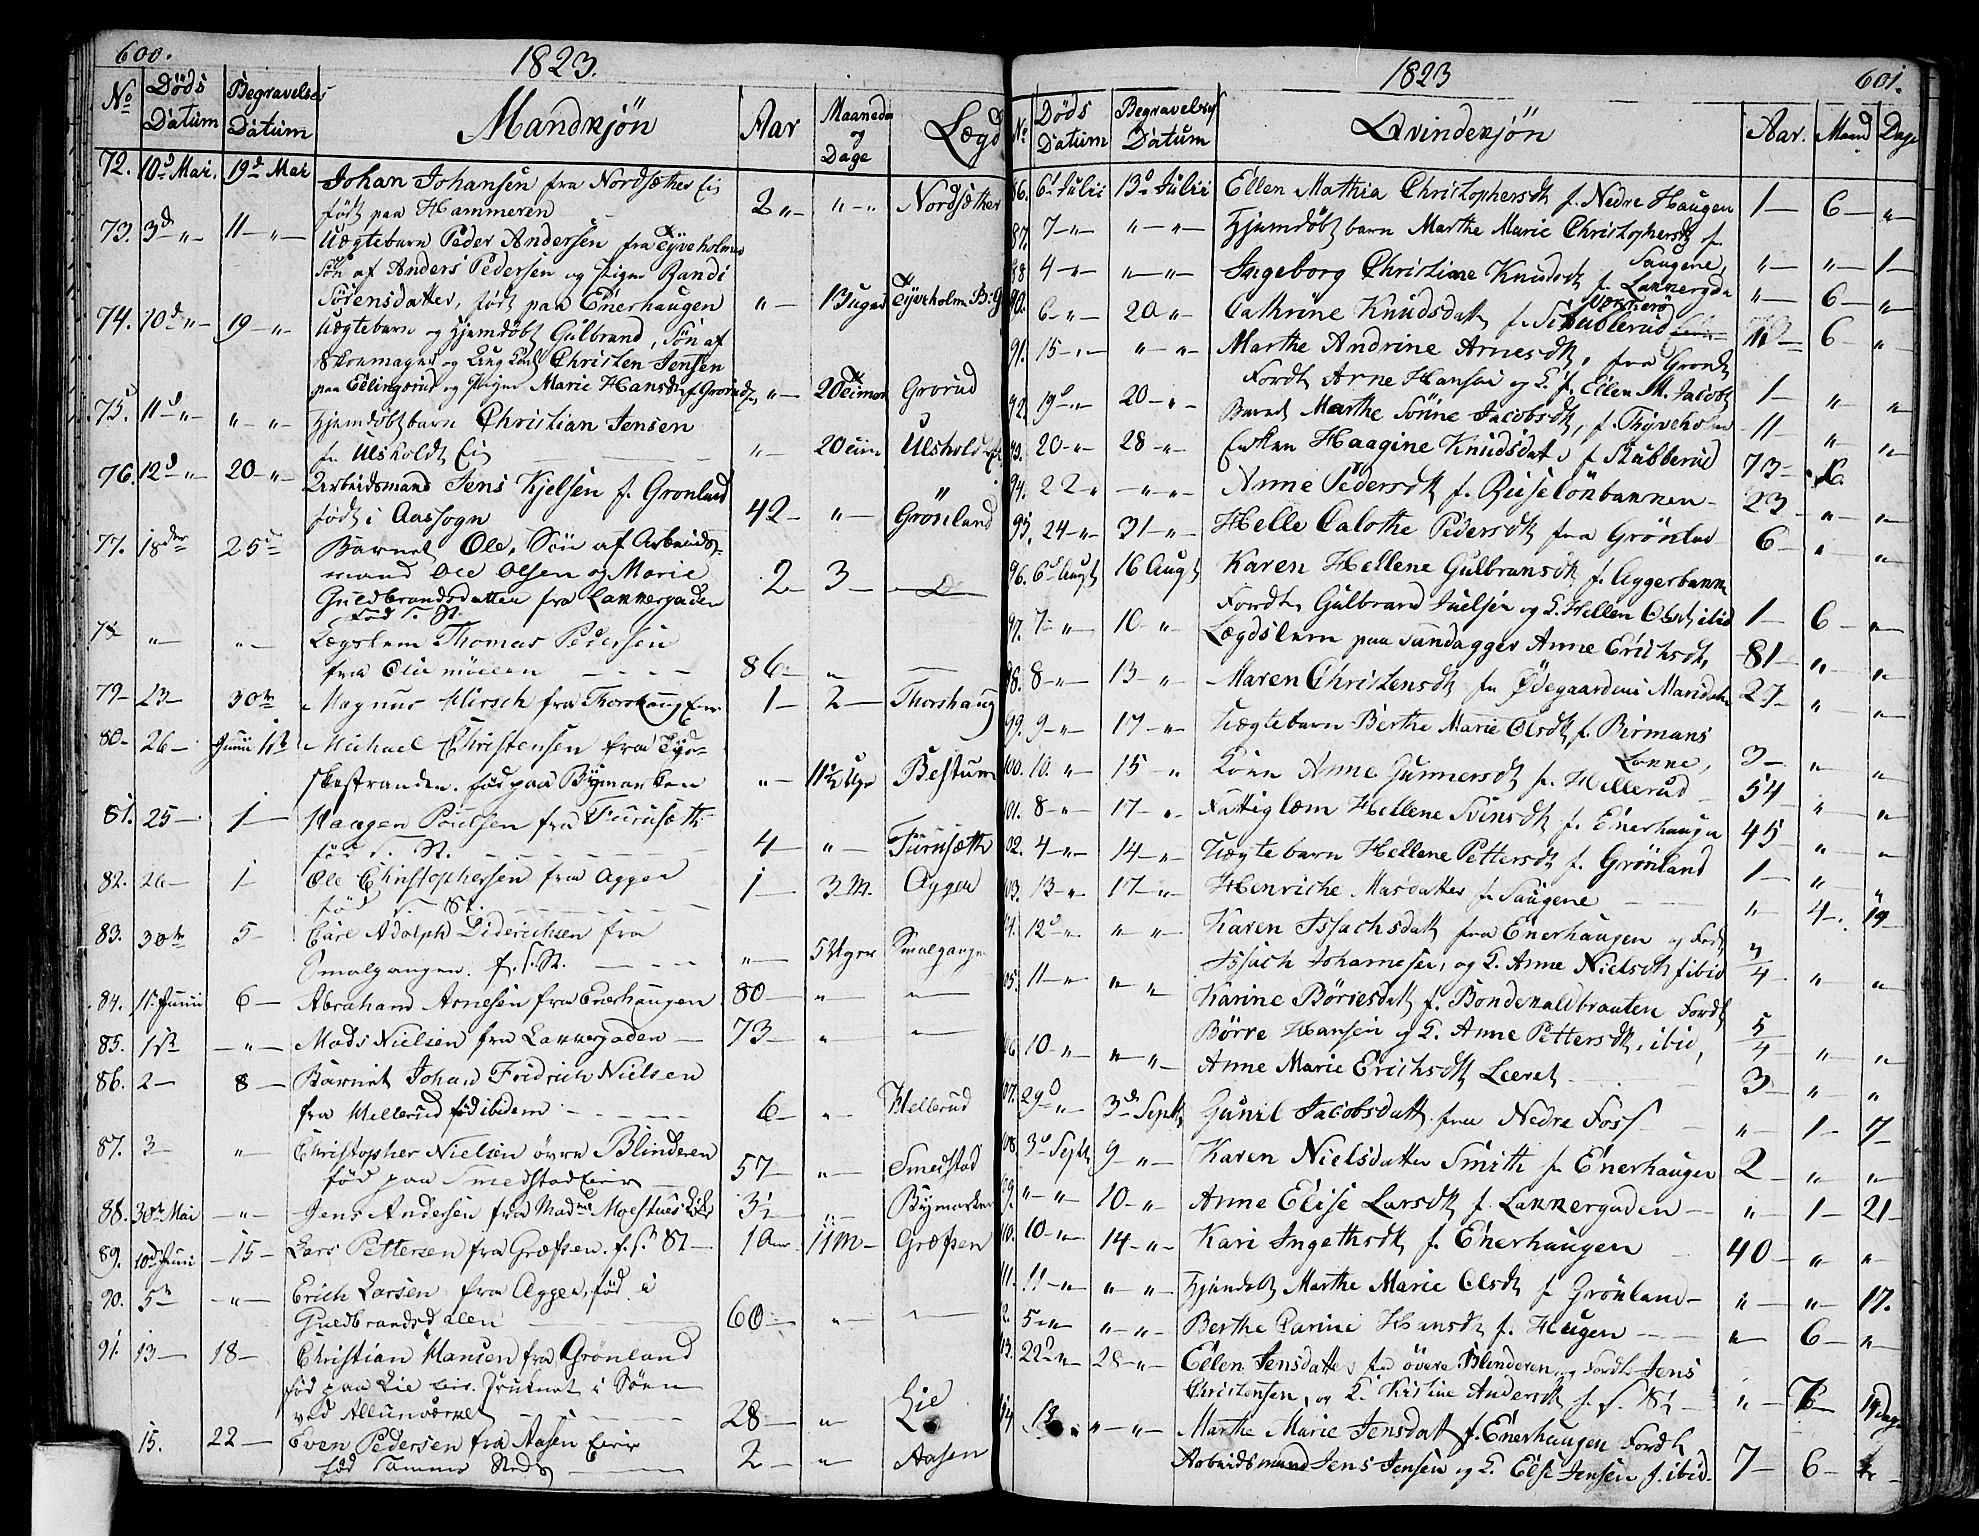 600.
1823.
No Döds Datum Begravelses Datum Mandkjön Aar Maaneder og Dage Lægd
72. 10d Mai. 19d Mai Johan Johansen fra Nordsæther Eie
født paa Hammeren 2 „ „ „ Nordsæther
73. 3d „ 11 „ Uægtebarn Peder Andersen fra Tyveholmen
Søn af Anders Pedersen og Pigen Randi
Sørensdatter, født paa Enerhaugen „ 13 uger Tyveholm
74. 10d „ 19 „ Uægtebarn og hjemdøbt Gulbrand, Søn af
Skomager og Ung Karl Christen Jensen
paa Edlingsrud og Pigen Marie Hansdr f. Grorud „ 20 Grorud
75. 11d „ „ „ Hjemdøbt barn Christian Jensen
fra Ulsholdt Eie „ 20 Ulsholdt
76. 12d „ 20 „ Arbeidsmand Jens Kjelsen f. Grønland
født i Aassogn 42 „ Grönland
77. 18der 25de Barnet Ole, Søn af Arbeids-
mand Ole Olsen og Marie
Guldbrandsdatter fra Lakkergaden 2 3 Do
Fød s. St.
78 „ „ Lægslem Thomas Pedersen
fra Oliemüllen 86 „ —
79 23 30te Magnus Hirsch fra Thorshaug Eier 1 2 Thorshaug
80 26 Junii 1ste Michael Christensen fra Tyd-
skestranden. fød paa Bymarken „ 11½ Uge Bestum
81. 25 1 Haagen Poulsen fra Furusæth
fød s. St. 4 „ Furusæth
82. 26 1 Ole Christophersen fra Agger 1 3 M. Agger
fød s. St.
83. 30te 5 Carl Adolph Diderichsen fra
Smalgangen. f. s. St. „ 5 Uger Smalgange
84. 11te Junii 6 Abraham Arnesen fra Enerhaugen 80 „ „
85. 1ste „ Mads Nielsen fra Lakkergaden 73 „ „
86. 2 8 Barnet Johan Fridrich Nielsen
fra Hellerud fød ibidem 6 „ Hellerud
87. 3 „ Christopher Nielsen øvre Blinderen
fød paa Smedstad Eier 57 „ Smedstad
88. 30te Mai „ Jens Andersen fra Madme Moestues Løke 3½ „ Bymarken
89. 10de Junii 15 Lars Pettersen fra Græfsen. f. s. St. 1 Aar 11 M Græfsen
90. 5te „ Erich Larsen fra Agger, fød i
Guldbrandsdalen 60 „ „
91. 13 18 Christian Hansen fra Grønland
fød paa Lie Eier. Druknet i Søen
ved Allunværket 28 „ Lie
15. 22 Even Pedersen fra Aasen Eier
fød samme Sted 2 „ Aasen
1823
601.
No. Döds Datum Begravelses Datum Qvindekjön Aar. Maand Dage
86. 6d Julii 13d Julii Ellen Mathia Christophersdt f. Nedre Haugen 1 6 „
87. 7 „ „ „ Hjemdøbt barn Marthe Marie Christophersdt f.
Saugene, „ „ 1
88. 4 „ „ „ Ingeborg Christine Knudsdt f. Lakkergdn „ 6 „
90. 6 „ 20 „ Cathrine Knudsdatt f. Stubberud 6 „
91. 15 „ „ „ Marthe Andrine Arnesdt, fra Grondt
Fordt Arne Hansen og Q. f. Ellen M. Jacobdt 1 „ „
92. 19d „ 20 „ Barnet Marthe Sönne Jacobsdt, f. Thyveholm 11 „ „
93. 20 „ 28 „ Enken Haagine Knudsdat. f. Stubberud 73
94. 22 „ „ „ Anne Pedersdt f. Ruseløkbakken 23 „ „
95. 24 „ 31 „ Helle Calothe Pedersdt fra Grönland 6 „ „
96. 6d Augt 16 Augt Karen Hellene Gulbransdt f. Aggerbakke
Fordt Gulbrand Juelsen og Q. Hellen Olsdt ibid 1 6 „
97. 7 „ 10 „ Lægdslem paa Sandagger Anne Erichsdt 81 „ „
98. 8 „ 13 „ Maren Christensdt fra Ødegaardens Mandskn 27 „ „
99. 9 „ 17 „ Uægtebarn Berthe Marie Olsdt f. Birmans
Løkke, 3 „ „
100. 10. „ 15 „ Konen Anne Gunnersdt f. Hellerud 54 „ „
101. 8 „ 17 „ Fattiglem Hellene Svinsdt f. Enerhaugen 45 „ „
102. 4 „ 14 „ Uægtebarn Hellene Pettersdt f. Grönland 1 „ „
103. 13 „ 17 „ Henriche Masdatter f. Saugene „ 4 14
104. 12d „ „ „ Karen Issachsdatt fra Enerhaugen og Fordt
Issach Johannesen, og Q. Anne Nielsdt f ibid 3/4 „ „
105. 11 „ „ „ Karine Börresdatt f. Bondekallbrauten Fordt
Börre Hansen og Q. Anne Pettersdt, ibid, 5/4 „ „
106. 10 „ „ „ Anne Marie Erichsdt Leeret 3 „ „
107. 29d „ 3de Septb Gunil Jacobsdatt fra Nedre Foss „ 1 7
108. 3d Septb 9 „ Karen Nielsdatter Smith fra Enerhaugen 2 „ „
109. „ „ 10 „ Anne Elise Larsdt f. Lakkergaden „ 1 21
110. 10 „ 14 „ Kari Ingethsdt f. Enerhaugen 40 „ „
111. 11 „ „ „ Hjemdøbt Marthe Marie Olsdt f Grönland „ „ 17.
112. 5 „ „ „ Berthe Carine Hansdt f. Haugen „ 6 „
113. 22d „ 28 „ Ellen Jensdatter fra övere Blinderen, og Fordt Jens
Christensen, og Q. Kistine Andersdt f. s. St „ 14 Dage
114 13 „ „ „ Marthe Marie Jensdatt f. Enerhaugen Fordt
Arbeidsmand Jens Jensen og Q. Else Jensen f. ibid 7 6